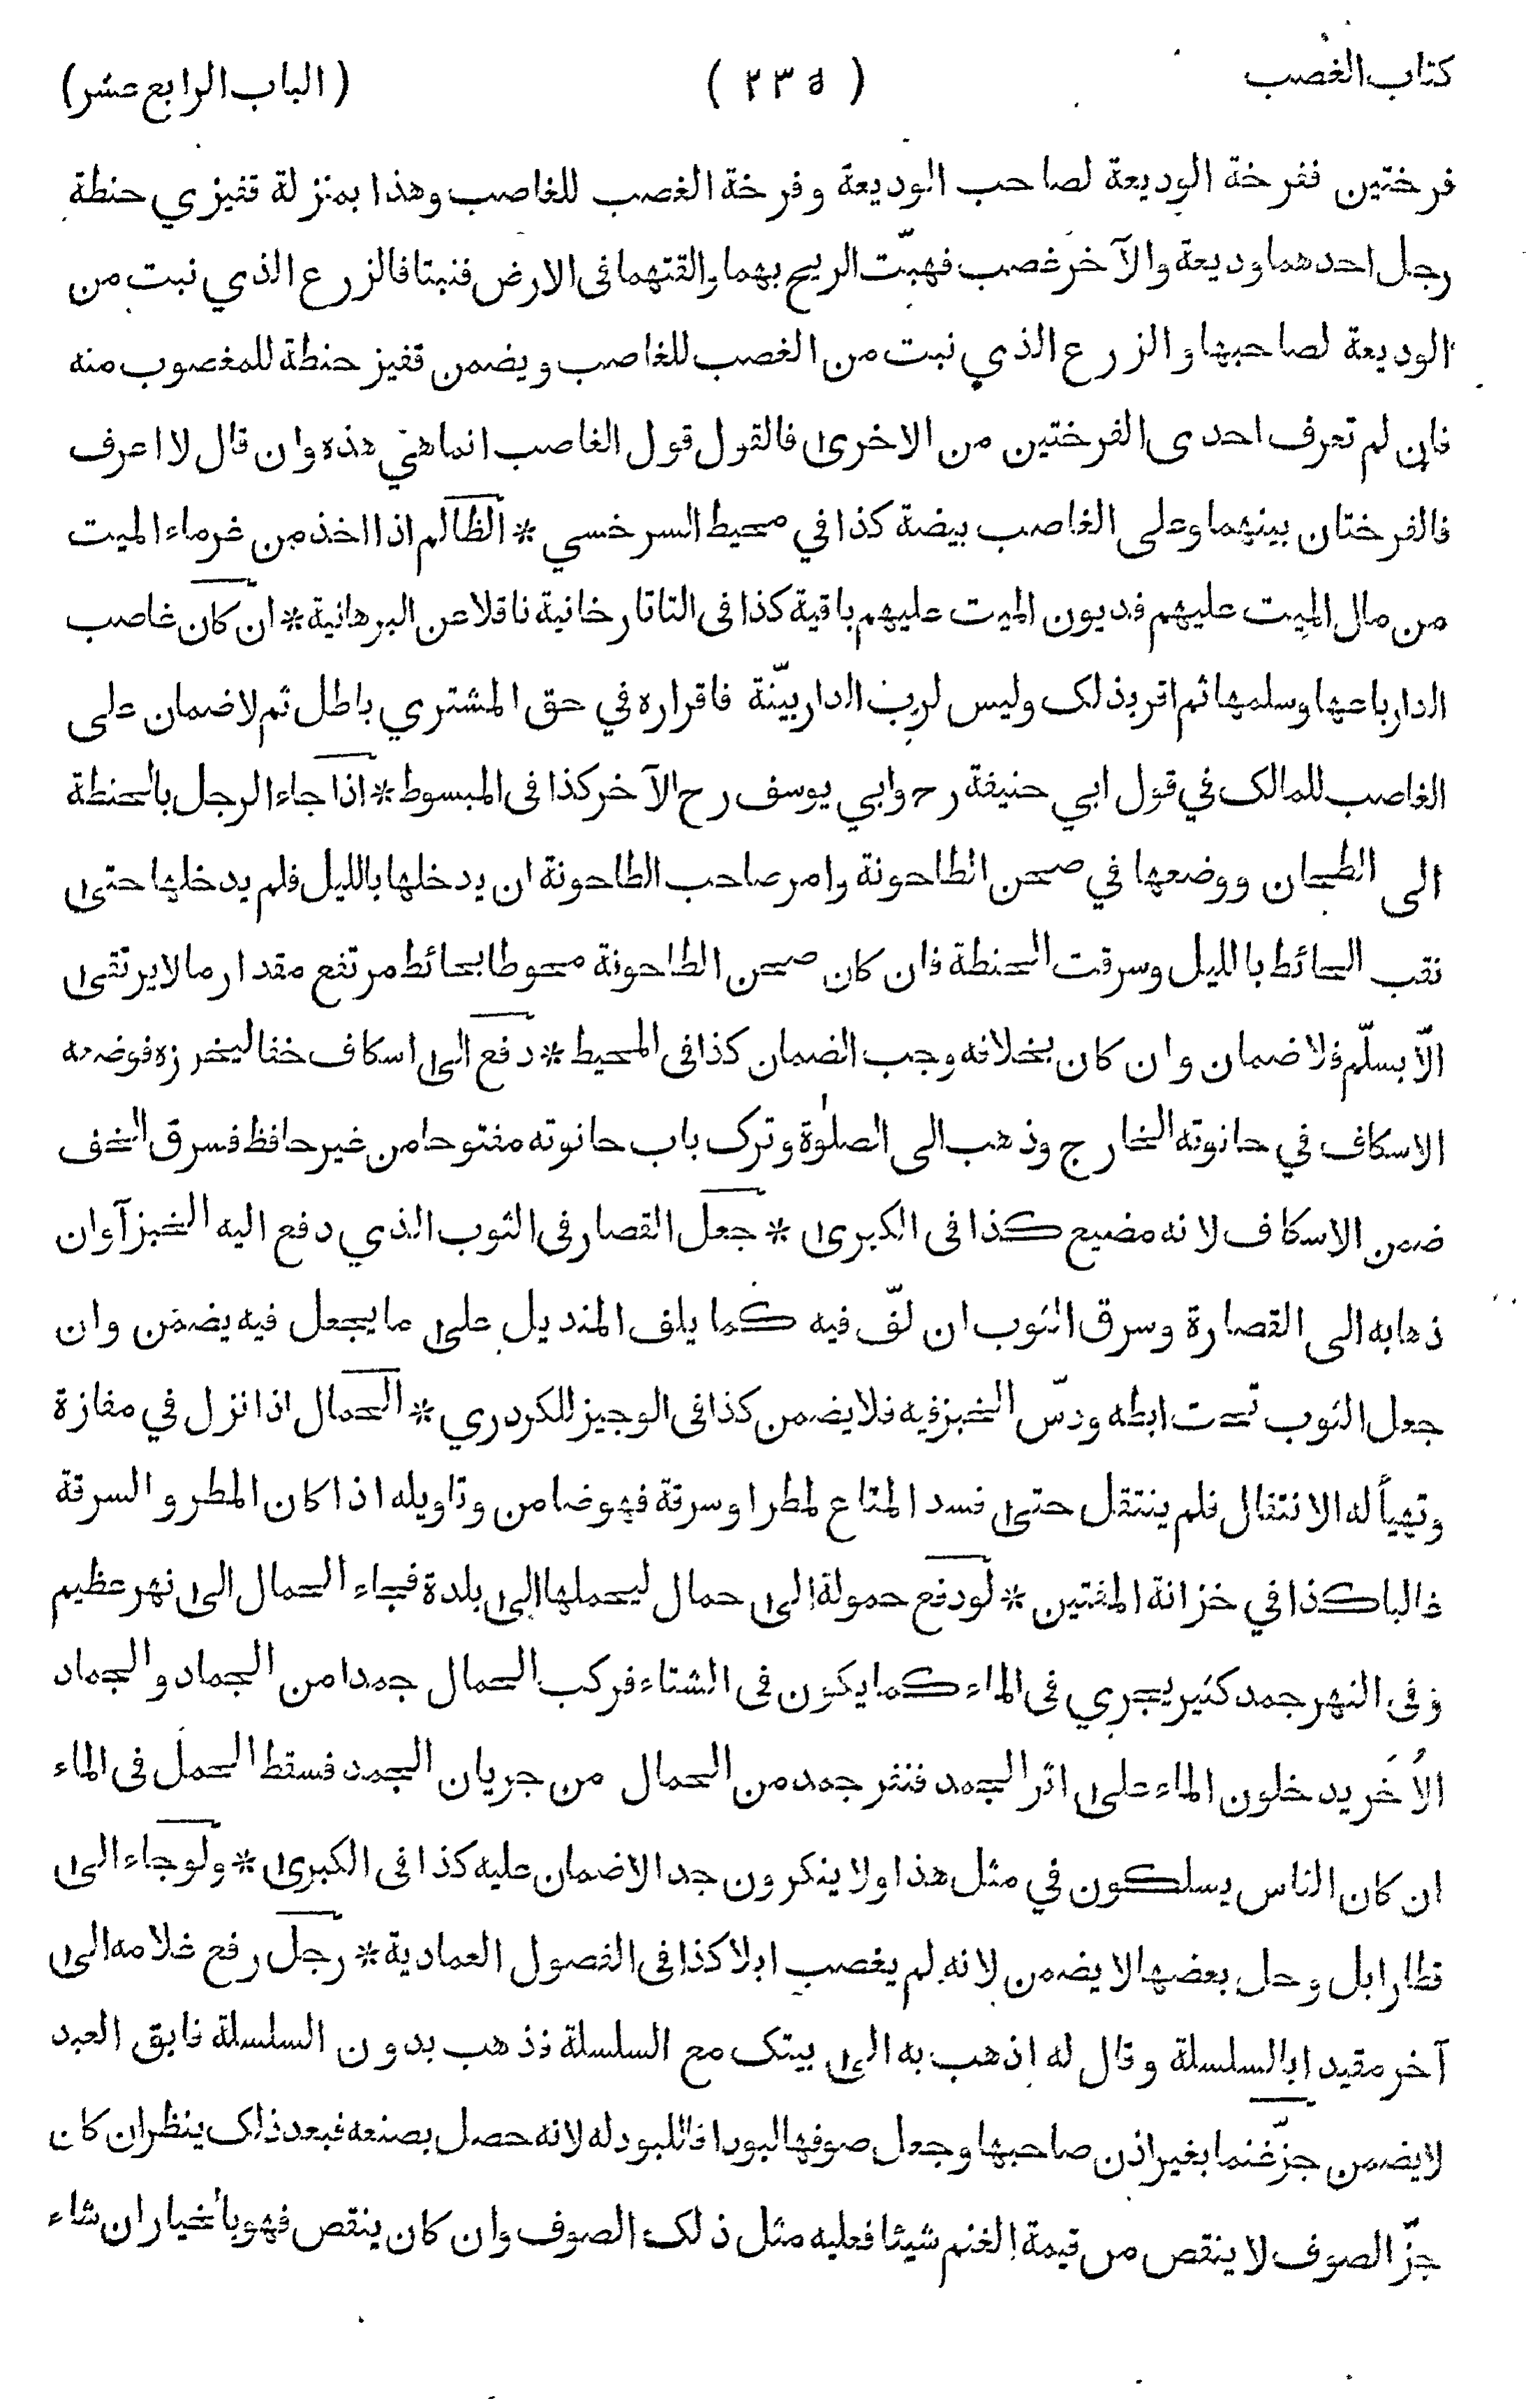 كتاب الغصب ( ٢٣٥ ) ( الباب الرابع عشر )
فرختين ففرخة الوديعة لصاحب الوديعة وفرخة الغصب للغاصب وهذا بمنزلة قفيزي حنطة
رجل احدهما وديعة والآخر غصب فهبّت الريح بهما والقتهما فى الارض فنبتا فالزرع الذي نبت من
الوديعة لصاحبها والزرع الذي نبت من الغصب للغاصب ويضمن قفيز حنطة للمغصوب منه
فان لم تعرف احدى الفرختين من الاخرى فالقول قول الغاصب انما هي هذه وان قال لا اعرف
فالفرختان بينهما وعلى الغاصب بيضة كذا في محيط السرخسي * الظالم اذا اخذ من غرماء الميت
من مال الميت عليهم فديون الميت عليهم باقية كذا فى التاتارخانية ناقلا عن البرهانية * ان كان غاصب
الدار باعها وسلمها ثم اقر بذلك وليس لرب الدار بيّنة فاقراره في حق المشتري باطل ثم لا ضمان على
الغاصب للمالك في قول ابي حنيفة رح وابي يوسف رح الآخر كذا فى المبسوط * اذا جاء الرجل بالحنطة
الى الطحان ووضعها في صحن الطاحونة وامر صاحب الطاحونة ان يدخلها بالليل فلم يدخلها حتى
نقب الحائط بالليل وسرقت الحنطة فان كان صحن الطاحونة محوطا بحائط مرتفع مقدار ما لا يرتقى
الّا بسلّم فلا ضمان وان كان بخلافه وجب الضمان كذا فى المحيط * دفع الى اسكاف خفا ليخرزه فوضعه
الاسكاف في حانوته الخارج وذهب الى الصلوٰة وترك باب حانوته مفتوحا من غير حافظ فسرق الخف
ضمن الاسكاف لانه مضيع كذا فى الكبرى * جعل القصار فى الثوب الذي دفع اليه الخبز آوان
ذهابه الى القصارة وسرق الثوب ان لفّ فيه كما يلف المنديل على ما يجعل فيه يضمن وان
جعل الثوب تحت ابطه ودسّ الخبز فيه فلا يضمن كذا فى الوجيز للكردري * الحمال اذا نزل في مفازة
وتهيأ له الانتقال فلم ينتقل حتى فسد المتاع لمطر او سرقة فهو ضامن وتاويله اذا كان المطر والسرقة
غالبا كذا في خزانة المفتين * لو دفع حمولة الى حمال ليحملها الى بلدة فجاء الحمال الى نهر عظيم
وفى النهر جمد كثير يجري فى الماء كما يكون فى الشتاء فركب الحمال جمدا من الجماد والجماد
الاُخَر يدخلون الماء على اثر الجمد فنثر جمد من الحمال من جريان الجمد فسقط الحمل فى الماء
ان كان الناس يسلكون في مثل هذا ولا ينكرون جدا لا ضمان عليه كذا فى الكبرى * ولو جاء الى
قطار ابل وحل بعضها لا يضمن لانه لم يغصب ابلا كذا فى الفصول العمادية * رجل رفع غلامه الى
آخر مقيدا بالسلسلة وقال له اذهب به الى بيتك مع السلسلة فذهب بدون السلسلة فابق العبد
لا يضمن جزّ غنما بغير اذن صاحبها وجعل صوفها لبودا فاللبود له لانه حصل بصنعه فبعد ذلك ينظر ان كان
جزّ الصوف لا ينقص من قيمة الغنم شيئا فعليه مثل ذلك الصوف وان كان ينقص فهو بالخيار ان شاء